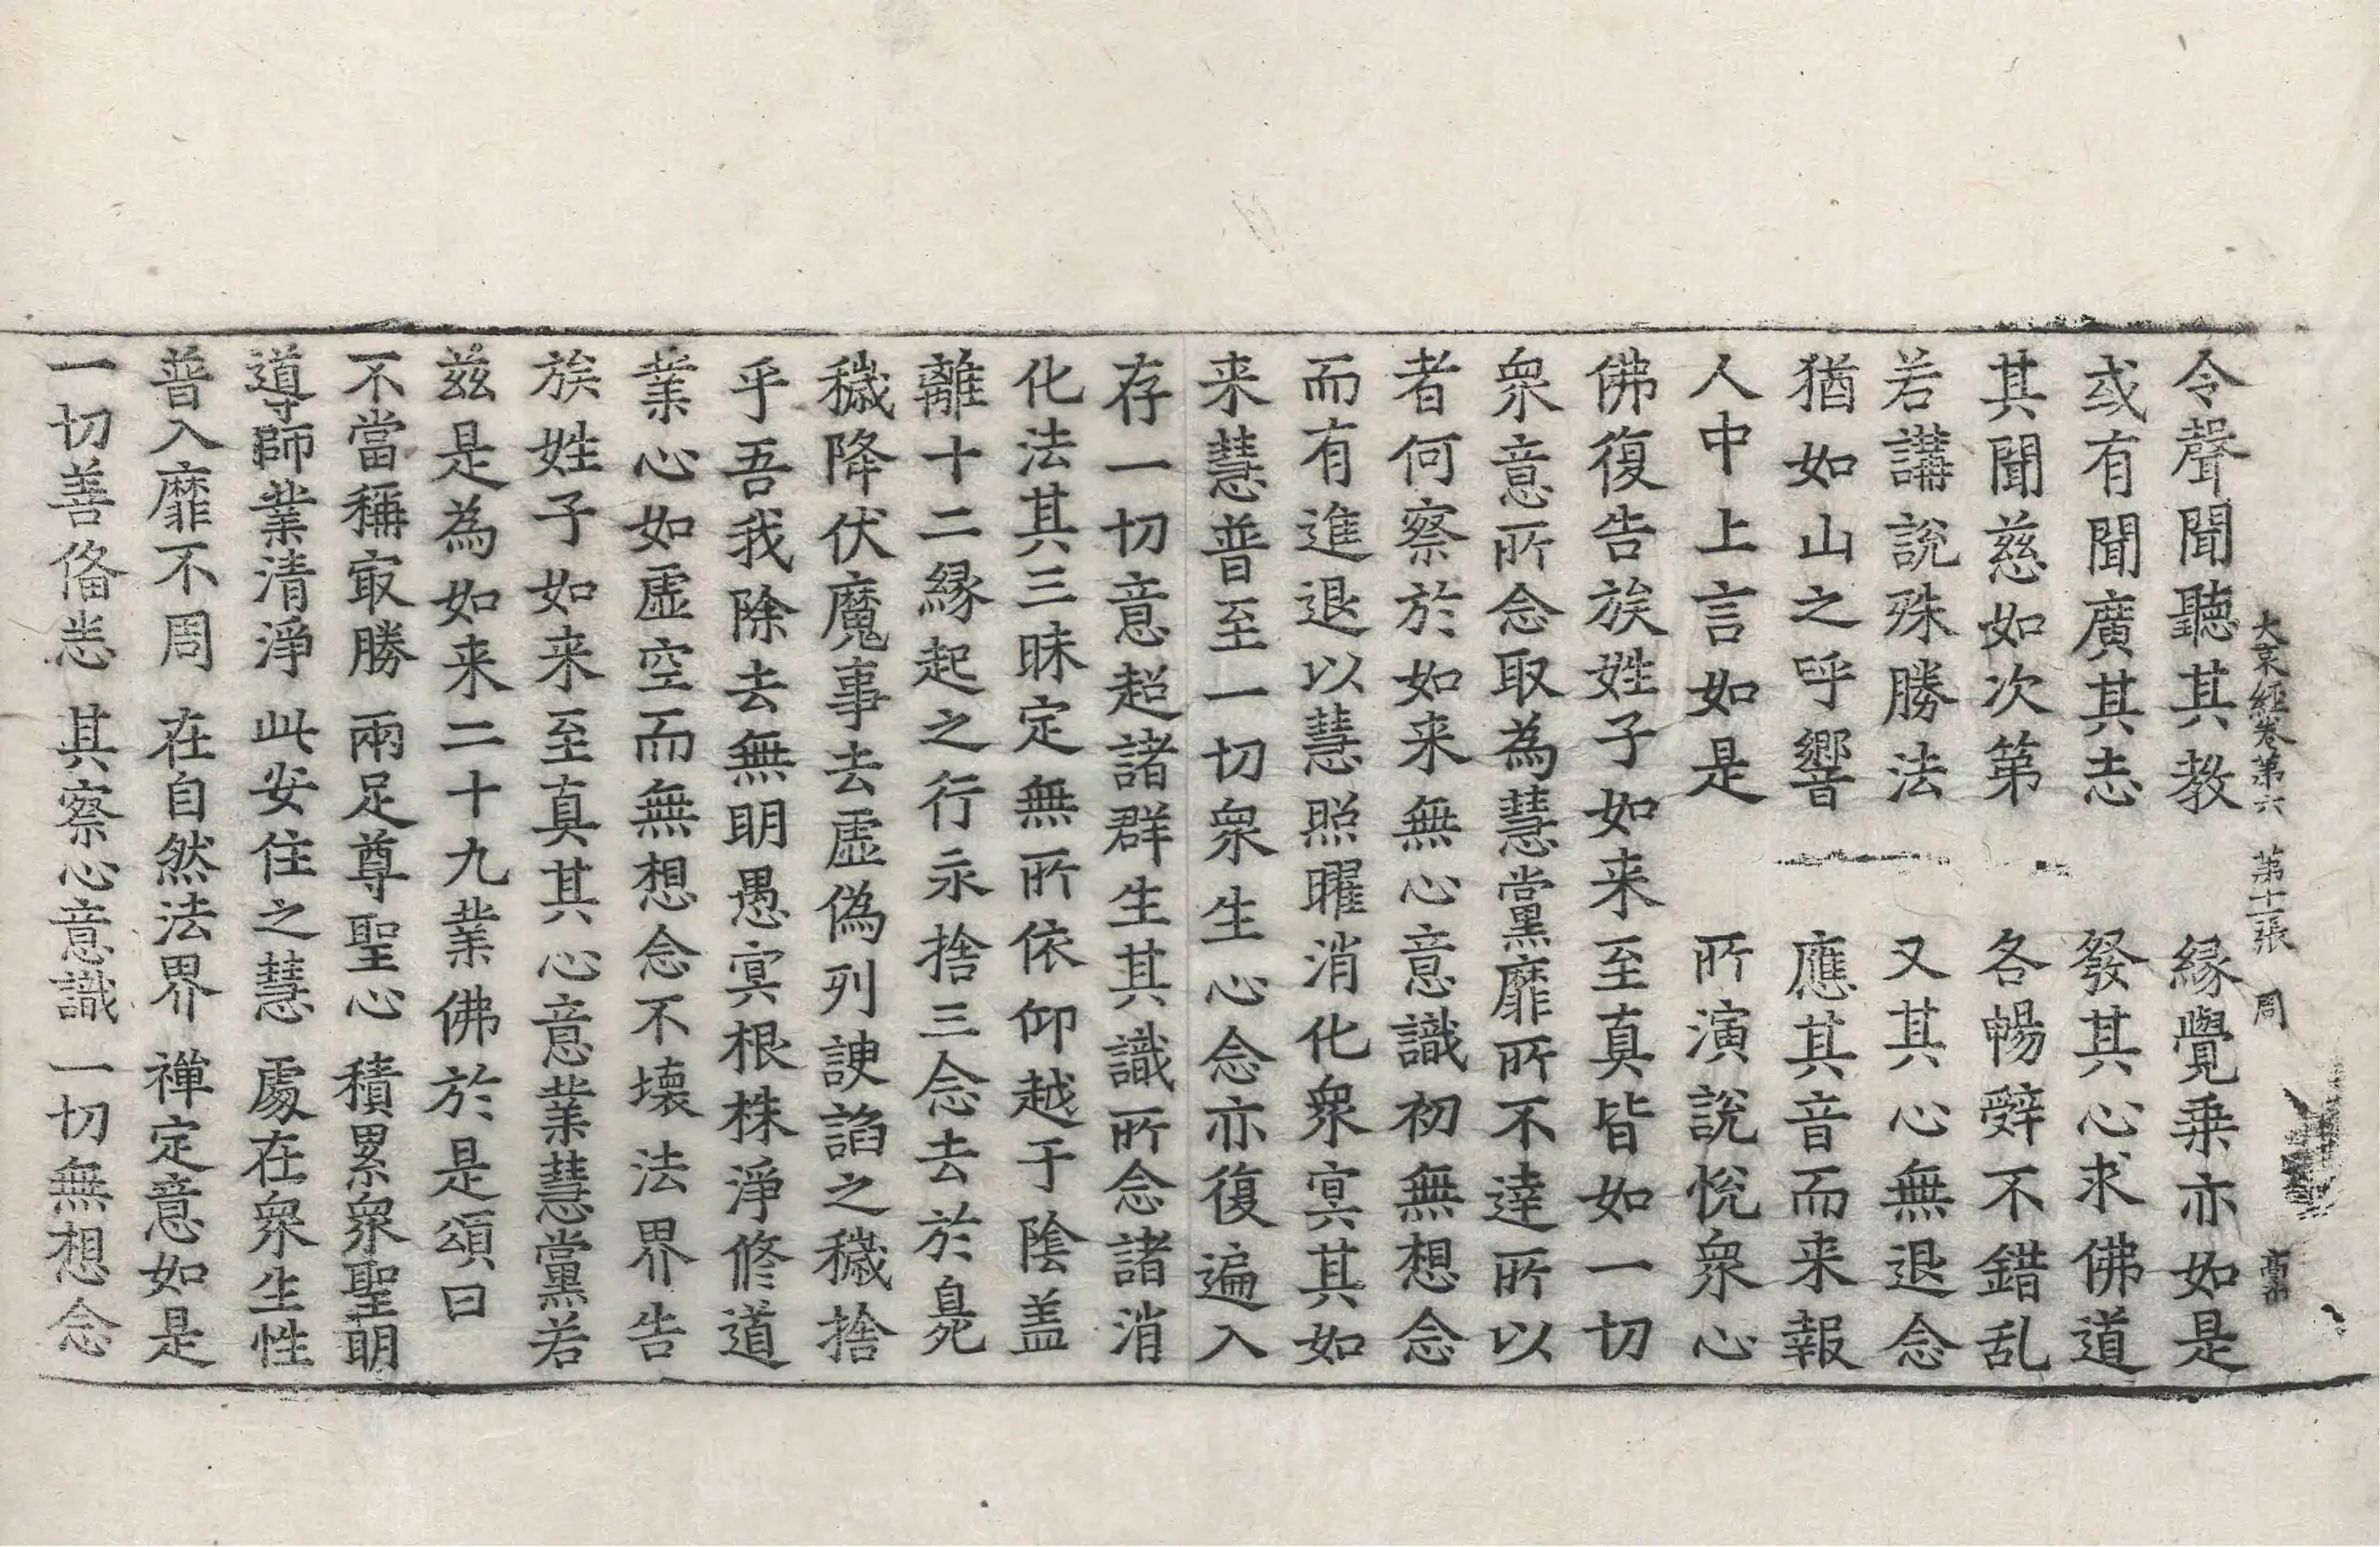 大哀經卷第六 第十一張 周
令聲聞聽其教 緣覺乘亦如是
或有聞廣其志 發其心求佛道
其聞慈如次第 各暢辭不錯乱
若講說殊勝法 又其心無退念
猶如山之呼響 應其音而来報
人中上言如是 所演說悅衆心
佛復告族姓子如来至真皆如一切
衆意所念取為慧黨靡所不達所以
者何察於如来無心意識初無想念
而有進退以慧照曜消化衆冥其如
来慧普至一切衆生心念亦復遍入
存一切意超諸群生其識所念諸消
化法其三昧定無所依仰越于陰盖
離十二緣起之行永捨三念去於臰
穢降伏魔事去虛偽列諛諂之穢捨
乎吾我除去無明愚冥根株淨修道
業心如虛空而無想念不壞法界告
族姓子如来至真其心意業慧黨若
兹是為如来二十九業佛於是頌曰
不當稱㝡勝 兩足尊聖心 積累衆聖明
導師業清淨 此安住之慧 處在衆生性
普入靡不周 在自然法界 禅定意如是
一切善俻悉 其察心意識 一切無想念